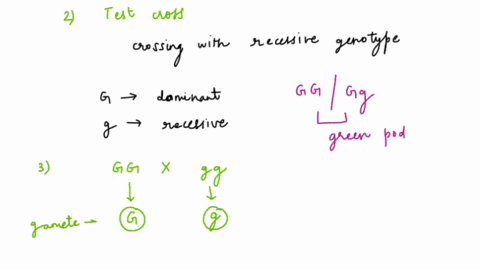 2) Test cross
crossing with recessive genotype
G → dominant
g → recessive
GG / Gg
green pod
3) GG X gg
gamete → G g